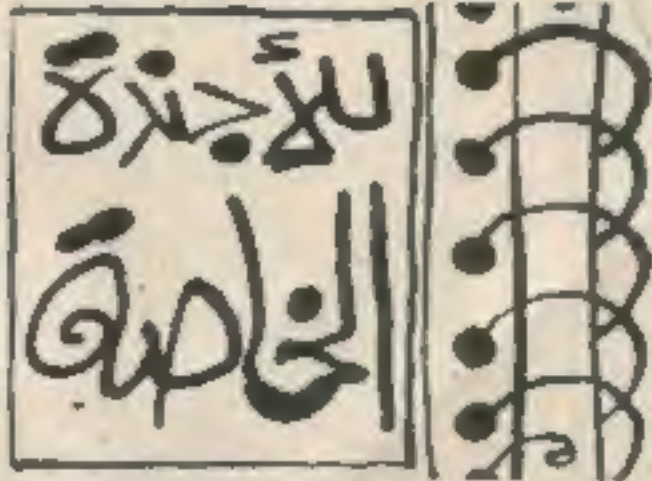 للأجندة
الخاصة